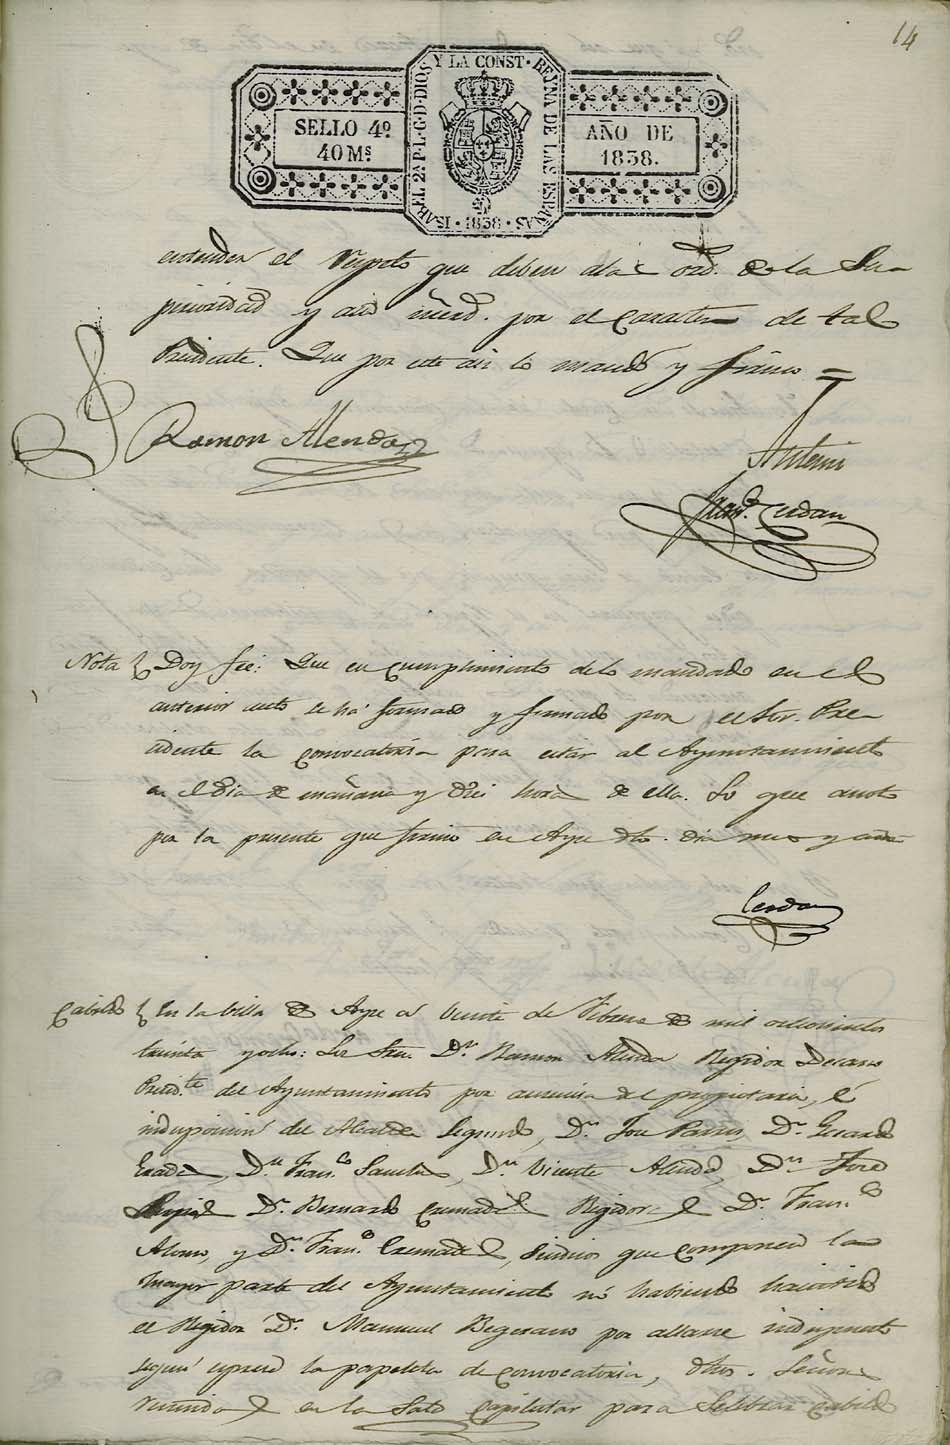 14
ISABEL 2ª P. L. G. D. DIOS Y LA CONST. REYNA DE LAS ESPAÑAS
SELLO 4º
40 Ms
AÑO DE
1838.
1838
entender el que deben a la de la Su-
perioridad y por el Caracter de tal
Presidente. Que por este asi lo mandó y firmo =
Ramon Alenda
Antemi
Franco. Cerdan
Nota Doy fee: Que en cumplimiento de lo mandado en el
anterior auto se há formado y firmado por el Sor. Pre-
sidente la convocatoria para citar al Ayuntamiento
en el dia de mañana y diez hora de ella. Lo que anoto
por la presente que firmo en Aspe dho. dia mes y año
Cerdan
Cabildo En la Villa de Aspe á veinte de Febrero de mil ochocientos
treinta y ocho: Los Sres. Dn. Ramon Alenda Regidor Decano
Presid.te del Ayuntamiento por ausencia del propietario, é
indisposicion del Alcalde Segundo, Dn. Jose Pavia, Dn. Gerardo
Dn. Franco. Sanchez, Dn. Vicente Alenda, Dn. Jose
Dn. Bernardo Cremades Regidores Dn. Franco.
Alonso, y Dn. Franco. Cremades, Sindicos que componen la
mayor parte del Ayuntamiento no habiendo
el Regidor Dn. Manuel por allarse indispuesto
segun la papeleta de convocatoria, dhos. Señores
reunidos en la Sala Capitular para Selebrar cabildo